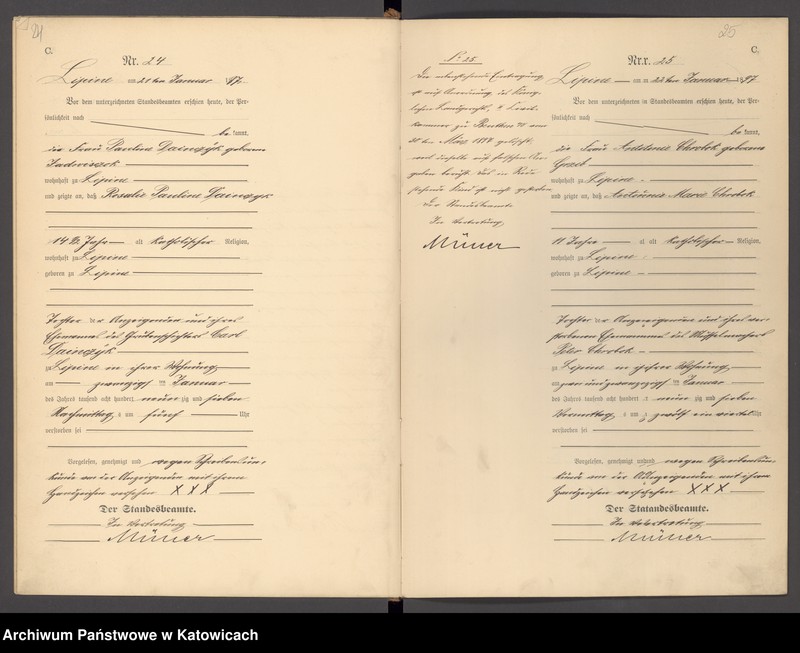 24
C.
Nr. 24
Lipine am 21ten Januar 1897.
Vor dem unterzeichneten Standesbeamten erschien heute, der Per-
sönlichkeit nach
be kannt,
die Frau Pauline Dainczyk geborene
wohnhaft zu Lipine
und zeigte an, daß Rosalie Pauline Dainczyk
14 Jahr alt Katholischer Religion,
wohnhaft zu Lipine
geboren zu Lipine
Tochter der Anzeigenden und ihres
Ehemannes des Carl
Dainczyk
zu Lipine in ihrer Wohnung
am zwanzigsten Januar
des Jahres tausend acht hundert neunzig und sieben
Nachmittags um fünf Uhr
verstorben sei
Vorgelesen, genehmigt und wegen Schreibensun-
kunde von der Anzeigenden mit ihrem
Handzeichen versehen XXX
Der Standesbeamte.
In Vertretung
No 25.
Die Eintragung
ist auf Anordnung des König-
lichen Landgerichts, Civil-
kammer zu Beuthen vom
März 1897 gelöscht,
weil dieselbe auf falschen An-
gaben beruht, das
Kind ist nicht gestorben
Der Standesbeamte
In Vertretung
25
C.
Nr. 25
Lipine am 22ten Januar 1897
Vor dem unterzeichneten Standesbeamten erschien heute, der Per-
sönlichkeit nach
be kannt,
die Frau Antonie Chrobok geborene
wohnhaft zu Lipine
und zeigte an, daß Antonie Marie Chrobok
11 Jahre alt Katholischer Religion,
wohnhaft zu Lipine
geboren zu Lipine
Tochter der Anzeigenden und ihres ver-
storbenen Ehemannes des
Peter Chrobok
zu Lipine in ihrer Wohnung,
am zwei und zwanzigsten Januar
des Jahres tausend acht hundert neunzig und sieben
Vormittags um zwölf ein viertel Uhr
verstorben sei
Vorgelesen, genehmigt und wegen Schreibensun-
kunde von der Anzeigenden mit ihrem
Handzeichen versehen XXX
Der Standesbeamte.
In Vertretung
Archiwum Państwowe w Katowicach